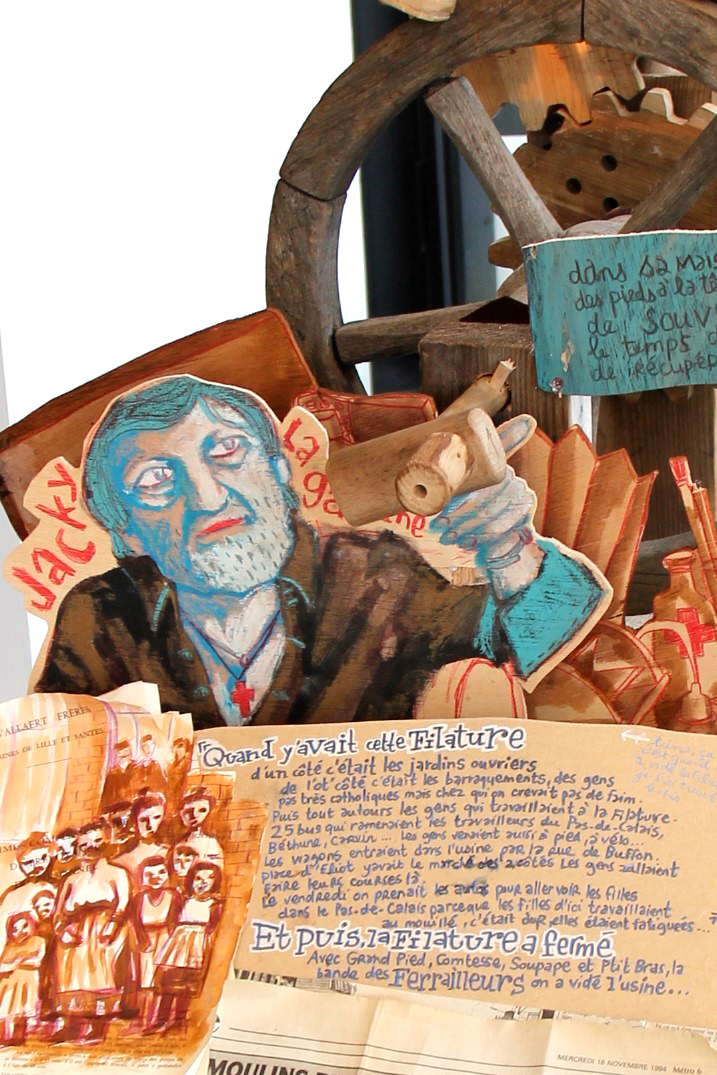 dans sa mais
des pieds à la tê
de SOUV
le temps d
de récupér
Jacky
La
ga
ne
VALLAERT FRÈRES
INES DE LILLE ET SANTES
"Quand y'avait cette Filature
d'un côté c'était les jardins ouvriers
de l'ot' côté c'était les barraquements, des gens
pas très catholiques mais chez qui on crevait pas de faim.
Puis tout autours les gens qui travaillaient à la Filature.
25 bus qui ramenaient les travailleurs du Pas-de-Calais,
Béthune, Carvin... Les gens venaient aussi à pied, à vélo...
Les wagons entraient dans l'usine par la Rue de Buffon.
place d'Eliot yavait le marché des 2 côtés Les gens zallaient
faire leurs courses là.
Le vendredi on prenait les autos pour aller voir les filles
dans le Pas-de-Calais parceque les filles d'ici travaillaient
au mouillé, c'était dur, elles étaient fatiguées...
Et puis, la Filature a fermé
Avec Grand Pied, Comtesse, Soupape et Ptit Bras, la
bande des Ferrailleurs on a vidé l'usine...
MOULINS
MERCREDI 18 NOVEMBRE 1994 Métro